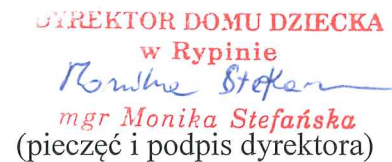 DYREKTOR DOMU DZIECKA
w Rypinie
mgr Monika Stefańska
(pieczęć i podpis dyrektora)